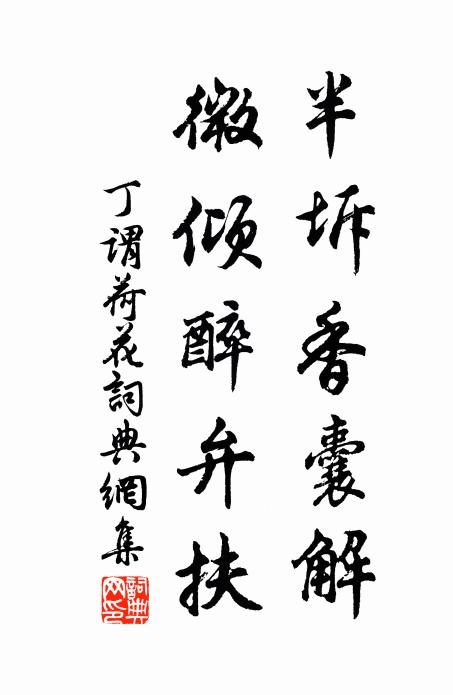 半坼香囊解
微倾醉弁扶
丁谓荷花詞典網集
詞典网印